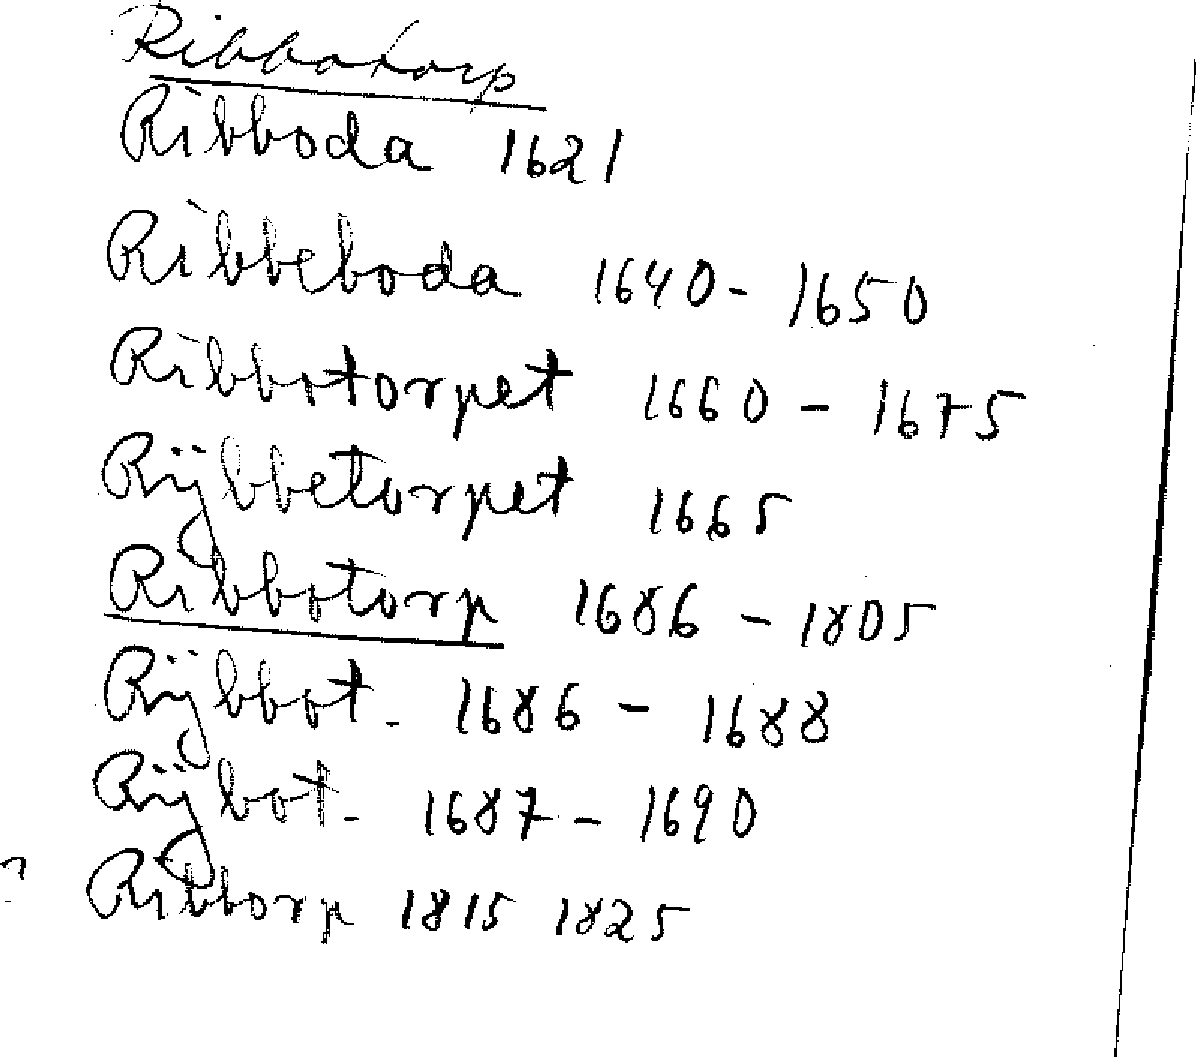 Ribbotorp
Ribboda 1621
Ribbeboda 1640 - 1650
Ribbotorpet 1660 - 1675
Rijbbetorpet 1665
Ribbotorp 1686 - 1805
Rijbbot. 1686 - 1688
Rijbot. 1687 - 1690
Ribtorp 1815 1825